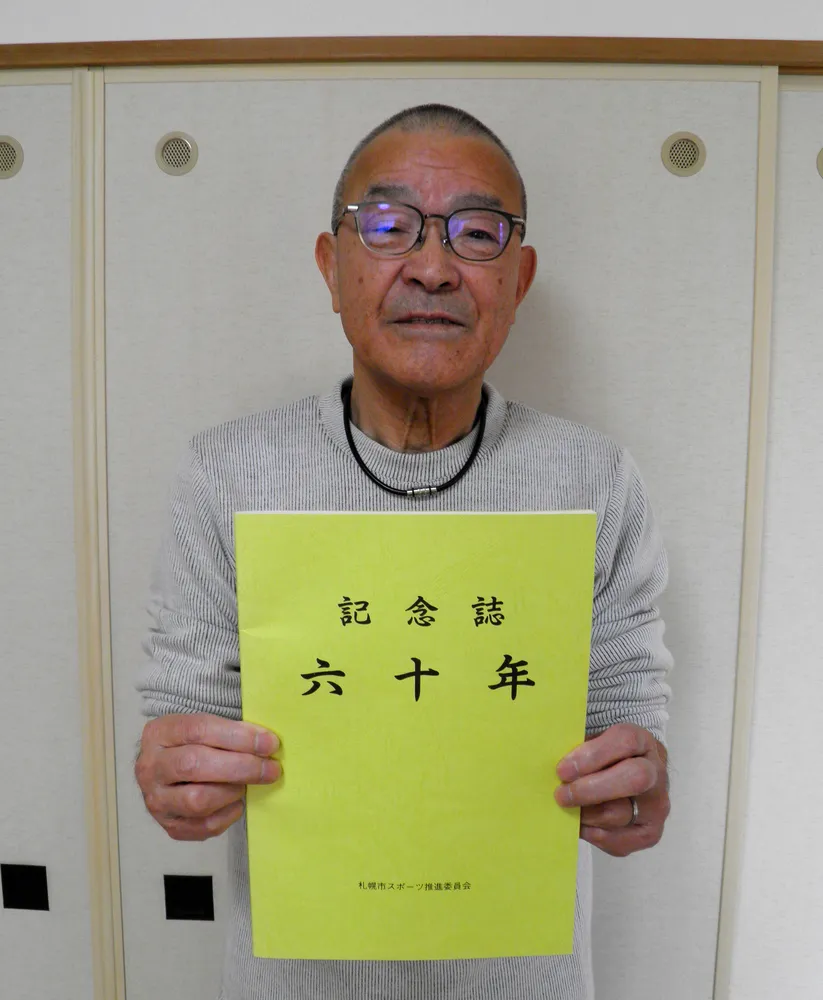 記念誌
六十年
札幌市スポーツ推進委員会